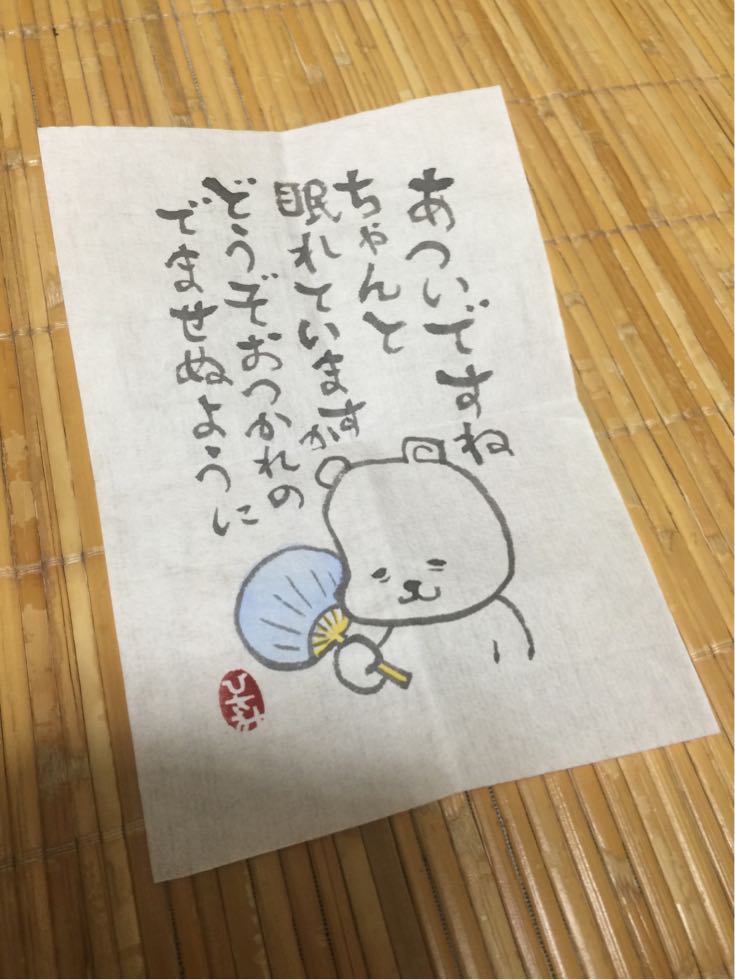 あついですね
ちゃんと
眠れていますか
どうぞおつかれの
でませぬように